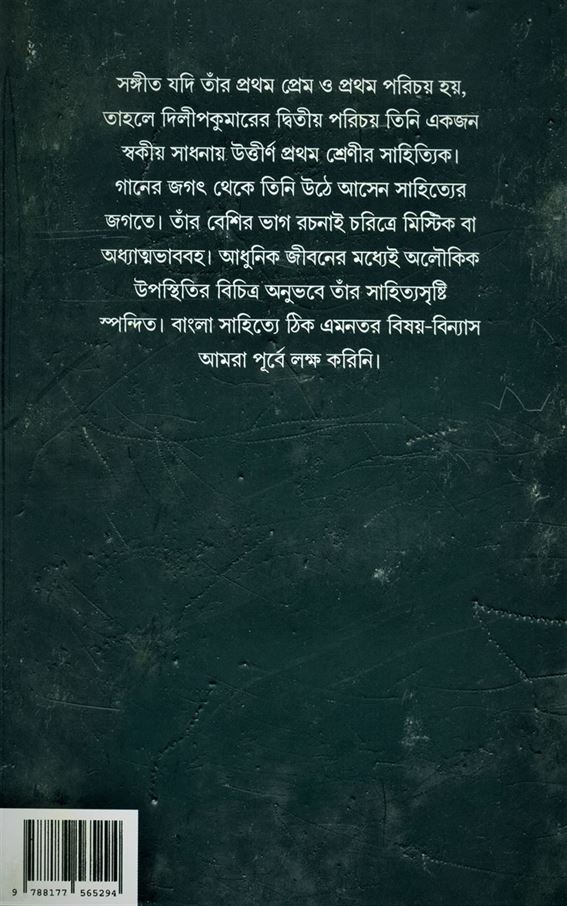 সঙ্গীত যদি তাঁর প্রথম প্রেম ও প্রথম পরিচয় হয়,
তাহলে দিলীপকুমারের দ্বিতীয় পরিচয় তিনি একজন
স্বকীয় সাধনায় উত্তীর্ণ প্রথম শ্রেণীর সাহিত্যিক।
গানের জগৎ থেকে তিনি উঠে আসেন সাহিত্যের
জগতে। তাঁর বেশির ভাগ রচনাই চরিত্রে মিস্টিক বা
অধ্যাত্মভাববহ। আধুনিক জীবনের মধ্যেই অলৌকিক
উপস্থিতির বিচিত্র অনুভবে তাঁর সাহিত্যসৃষ্টি
স্পন্দিত। বাংলা সাহিত্যে ঠিক এমনতর বিষয়-বিন্যাস
আমরা পূর্বে লক্ষ করিনি।
9 788177 565294